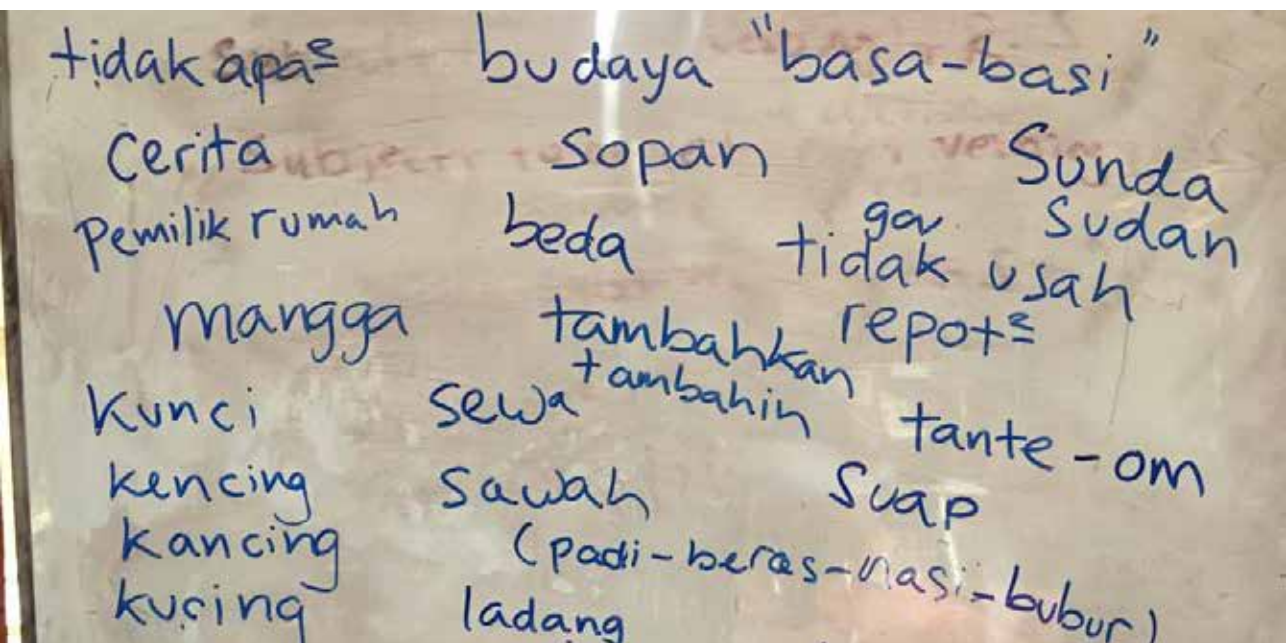 tidak apa² budaya "basa-basi"
cerita sopan Sunda
pemilik rumah beda ga. Sudan
tidak usah
mangga tambahkan repot²
kunci sewa tambahin tante-om
kencing sawah suap
kancing (padi-beras-nasi-bubur)
kucing ladang